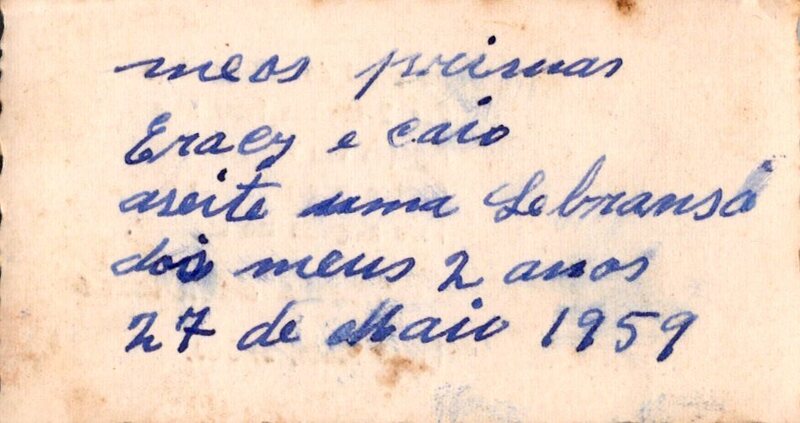 meos primas
Eracy e caio
aseite uma Lebransa
dois meus 2 anos
27 de Maio 1959